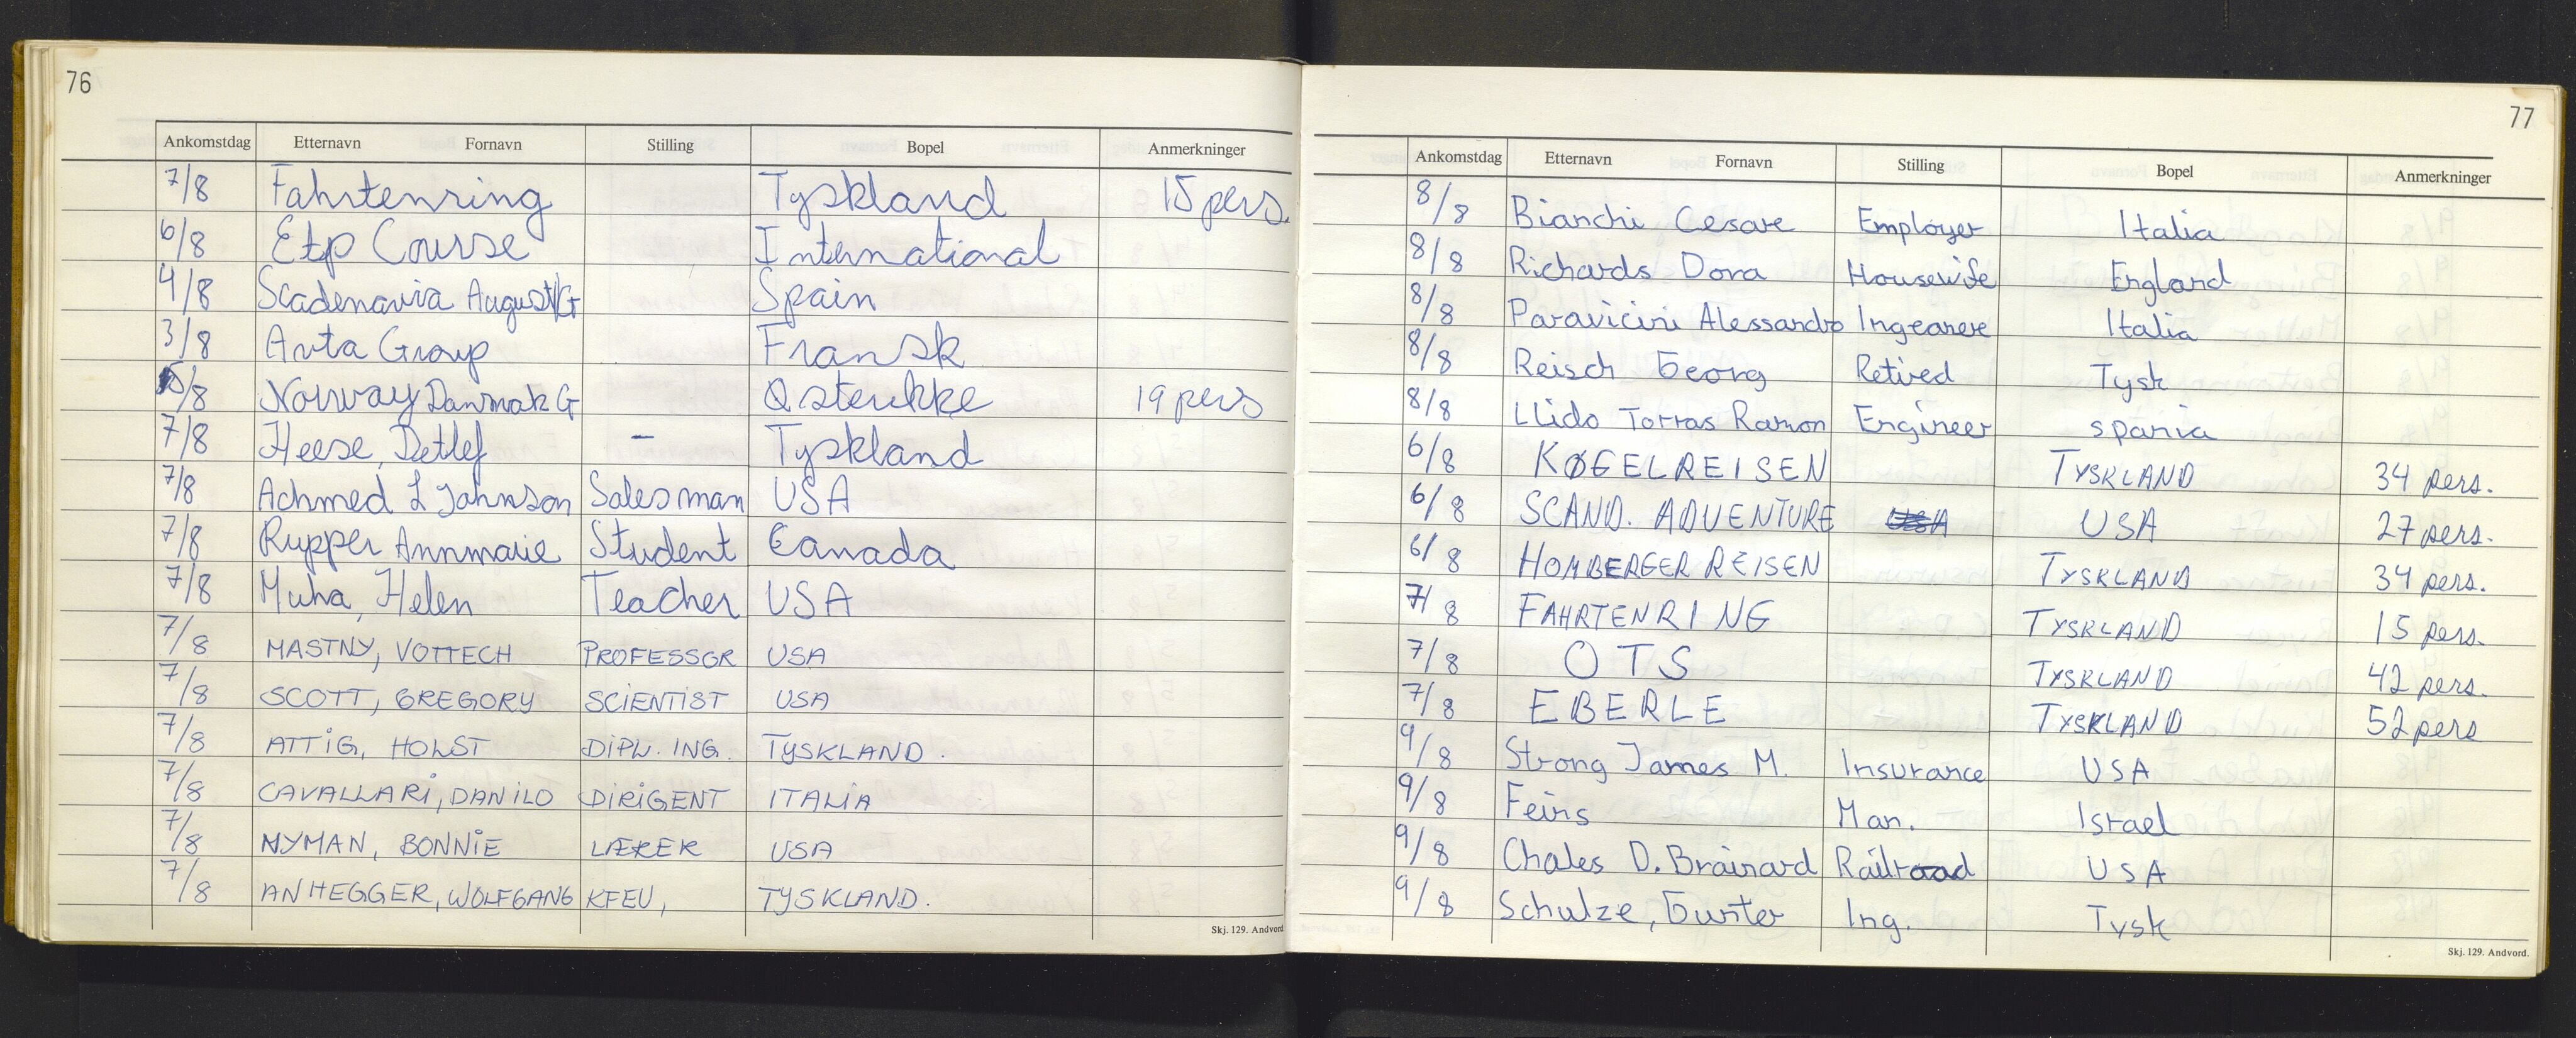 76
Ankomstdag Etternavn Fornavn Stilling Bopel Anmerkninger
7/8 Fahrtenring Tyskland 15 pers.
6/8 Etp Course International
4/8 Scadenavia August/G Spain
3/8 Arta Group Fransk
5/8 Norway Danmak G Østerikke 19 pers
7/8 Heese, Detlef - Tyskland
7/8 Achmed L Johnson Salesman USA
7/8 Rupper Annmarie Student Canada
7/8 Muha, Helen Teacher USA
7/8 MASTNY, VOTTECH PROFESSOR USA
7/8 SCOTT, GREGORY SCIENTIST USA
7/8 ATTIG, HOLST DIPL. ING. TYSKLAND.
7/8 CAVALLARI, DANILO DIRIGENT ITALIA
7/8 NYMAN, BONNIE LÆRER USA
7/8 ANHEGGER, WOLFGANG KFEU, TYSKLAND.
Skj. 129. Andvord
77
Ankomstdag Etternavn Fornavn Stilling Bopel Anmerkninger
8/8 Bianchi Cesare Employer Italia
8/8 Richards Dora Housewife England
8/8 Paravicini Alessandro Ingeanere Italia
8/8 Reisch Georg Retired Tysk
8/8 Llido Torras Ramon Engineer spania
6/8 KØGELREISEN TYSKLAND 34 pers.
6/8 SCAND. ADVENTURE USA USA 27 pers.
6/8 HOMBERGER REISEN TYSKLAND 34 pers.
7/8 FAHRTENRING TYSKLAND 15 pers.
7/8 OTS TYSKLAND 42 pers.
7/8 EBERLE TYSKLAND 52 pers
9/8 Strong James M. Insurance USA
9/8 Feins Man. Israel
9/8 Chales D. Brainard Railroad USA
9/8 Schulze, Gunter Ing. Tysk
Skj. 129. Andvord.